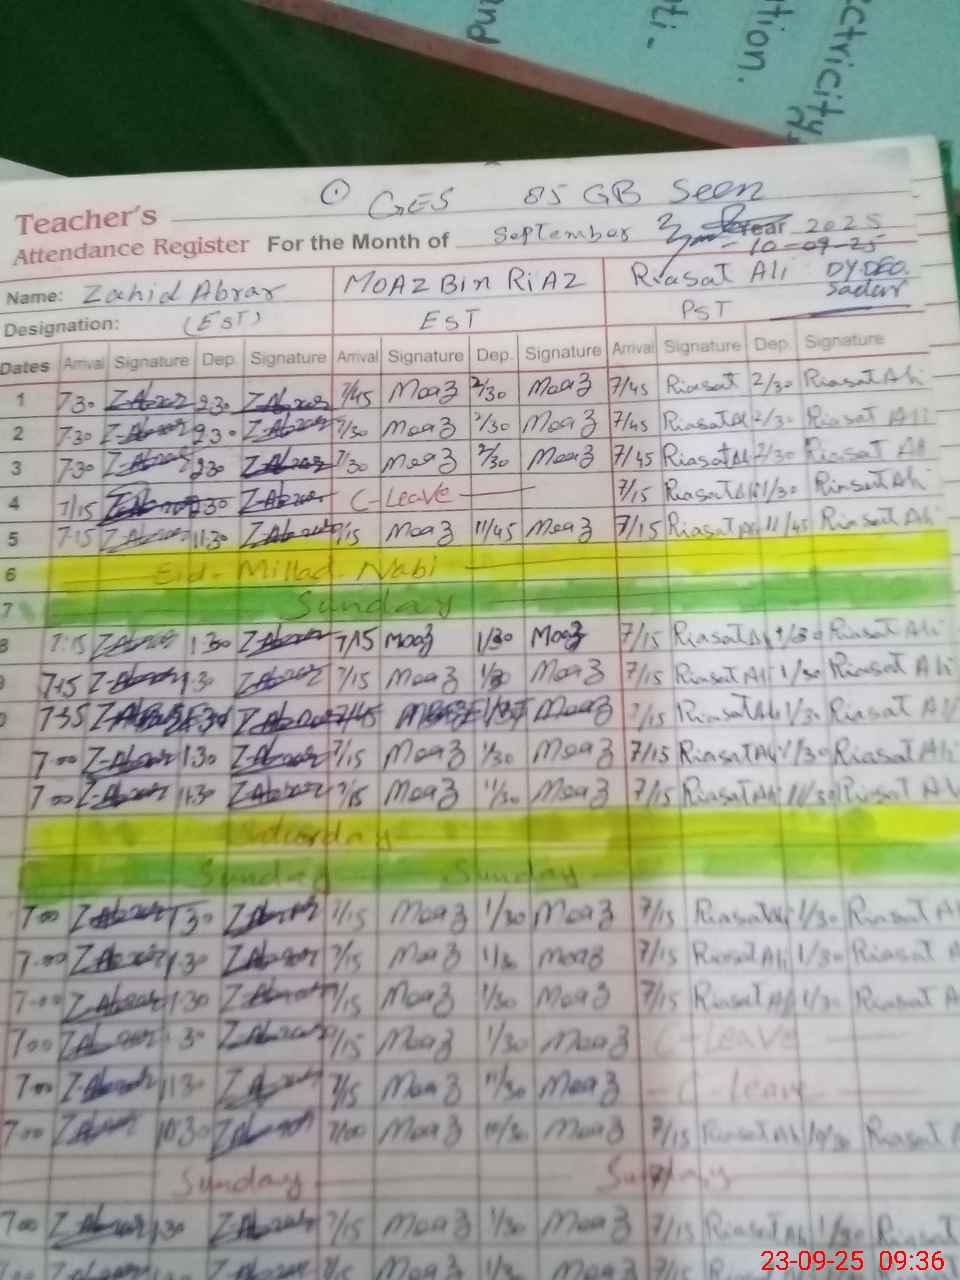 ectricity
tion.
ti-
nd
① GES 85 GB Seen
Teacher's
Attendance Register For the Month of September Year 2025
10-09-25
Name: Zahid Abrar MOAZ Bin RiAZ Riasat Ali DY.DEO.
Sadar
Designation: (EST) EST PST
Dates Arrival Signature Dep. Signature Arrival Signature Dep. Signature Arrival Signature Dep. Signature
1 730 Z-Abrar 230 Z-Abrar 7/45 Moaz 2/30 Moaz 7/45 Riasat 2/30 Riasat Ali
2 7-30 Z-Abrar 230 Z-Abrar 7/30 Moaz 2/30 Moaz 7/45 Riasat Ali 2/30 Riasat Ali
3 7-30 Z-Abrar 230 Z-Abrar 7/30 Moaz 2/30 Moaz 7/45 Riasat Ali 2/30 Riasat Ali
4 7/15 Z-Abrar Z-Abrar C-Leave 7/15 Riasat Ali 1/30 Riasat Ali
5 7-15 Z-Abrar 11:30 Z-Abrar 7/15 Moaz 11/45 Moaz 7/15 Riasat Ali 11/45 Riasat Ali
6 Eid-Millad-Nabi
7 Sunday
8 7:15 Z-Abrar 1:30 Z-Abrar 7/15 Moaz 1/30 Moaz 7/15 Riasat Ali 1/30 Riasat Ali
7-15 Z-Abrar 1-30 Z-Abrar 7/15 Moaz 1/30 Moaz 7/15 Riasat Ali 1/30 Riasat Ali
735 Z-Abrar Z-Abrar 7/45 Moaz Moaz 7/15 Riasat Ali 1/30 Riasat Ali
7-00 Z-Abrar 1:30 Z-Abrar 7/15 Moaz 1/30 Moaz 7/15 Riasat Ali 1/30 Riasat Ali
7 00 Z-Abrar 11:30 Z-Abrar 7/15 Moaz 11/30 Moaz 7/15 Riasat Ali 11/30 Riasat Al
Saturday
Sunday Sunday
7:00 Z-Abrar 1-30 Z-Abrar 7/15 Moaz 1/30 Moaz 7/15 Riasat Ali 1/30 Riasat A
7-00 Z-Abrar 1-30 Z-Abrar 7/15 Moaz Moaz 7/15 Riasat Ali 1/30 Riasat A
7-00 Z-Abrar 1-30 Z-Abrar 7/15 Moaz 1/30 Moaz 7/15 Riasat Ali 1/30 Riasat A
700 Z-Abrar 1-30 Z-Abrar 7/15 Moaz 1/30 Moaz C-Leave
7-00 Z-Abrar 1130 7/15 Moaz 11/30 Moaz C-Leave
7-00 Z-Abrar 10:30 Z-Abrar 7/00 Moaz 10/30 Moaz 7/15 Riasat Ali 10/30 Riasat A
Sunday Sunday
7-00 Z-Abrar 1:30 Z-Abrar 7/15 Moaz 1/30 Moaz 7/15 Riasat Ali 1/30 Riasat
23-09-25 09:36